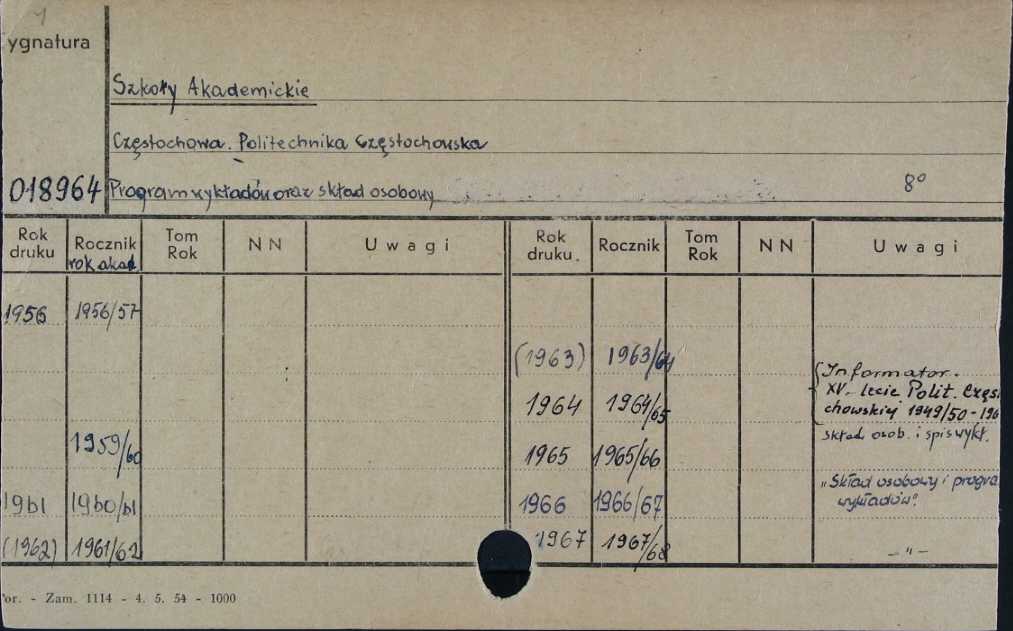 1
ygnatura
Szkoły Akademickie
Częstochowa. Politechnika Częstochowska
018964 Program wykładów oraz skład osobowy 8°
Rok druku Rocznik rok akad. Tom Rok NN Uwagi Rok druku. Rocznik Tom Rok NN Uwagi
1956 1956/57
(1963) 1963/64 Informator.
XV-lecie Polit. Częs
1964 1964/65 chowskiej 1949/50-196
1959/60 skład osob. i spis wykł.
1965 1965/66
1961 1960/61 1966 1966/67 „Skład osobowy i progra
wykładów".
(1962) 1961/62 1967 1967/68 — " —
or. - Zam. 1114 - 4. 5. 54 - 1000